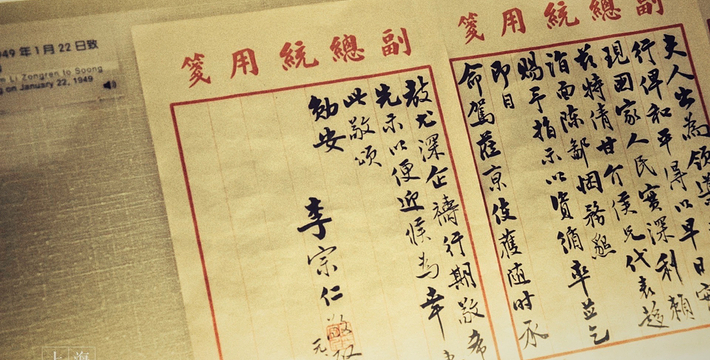 949 年 1 月 22 日致
m Li Zongren to Soong
g on January 22, 1949
副總統用箋
夫人出為領導
行俾和平得以早日實
現國家人民實深利賴
茲特倩甘介侯兄代表趨
詣面陳鄙悃務懇
賜予指示以資循率並乞
即日
命駕蒞京俾獲隨時承
副總統用箋
教尤深企禱行期敬希
先示以便迎候為幸
此敬頌
勛安
李宗仁敬啟
元
上海